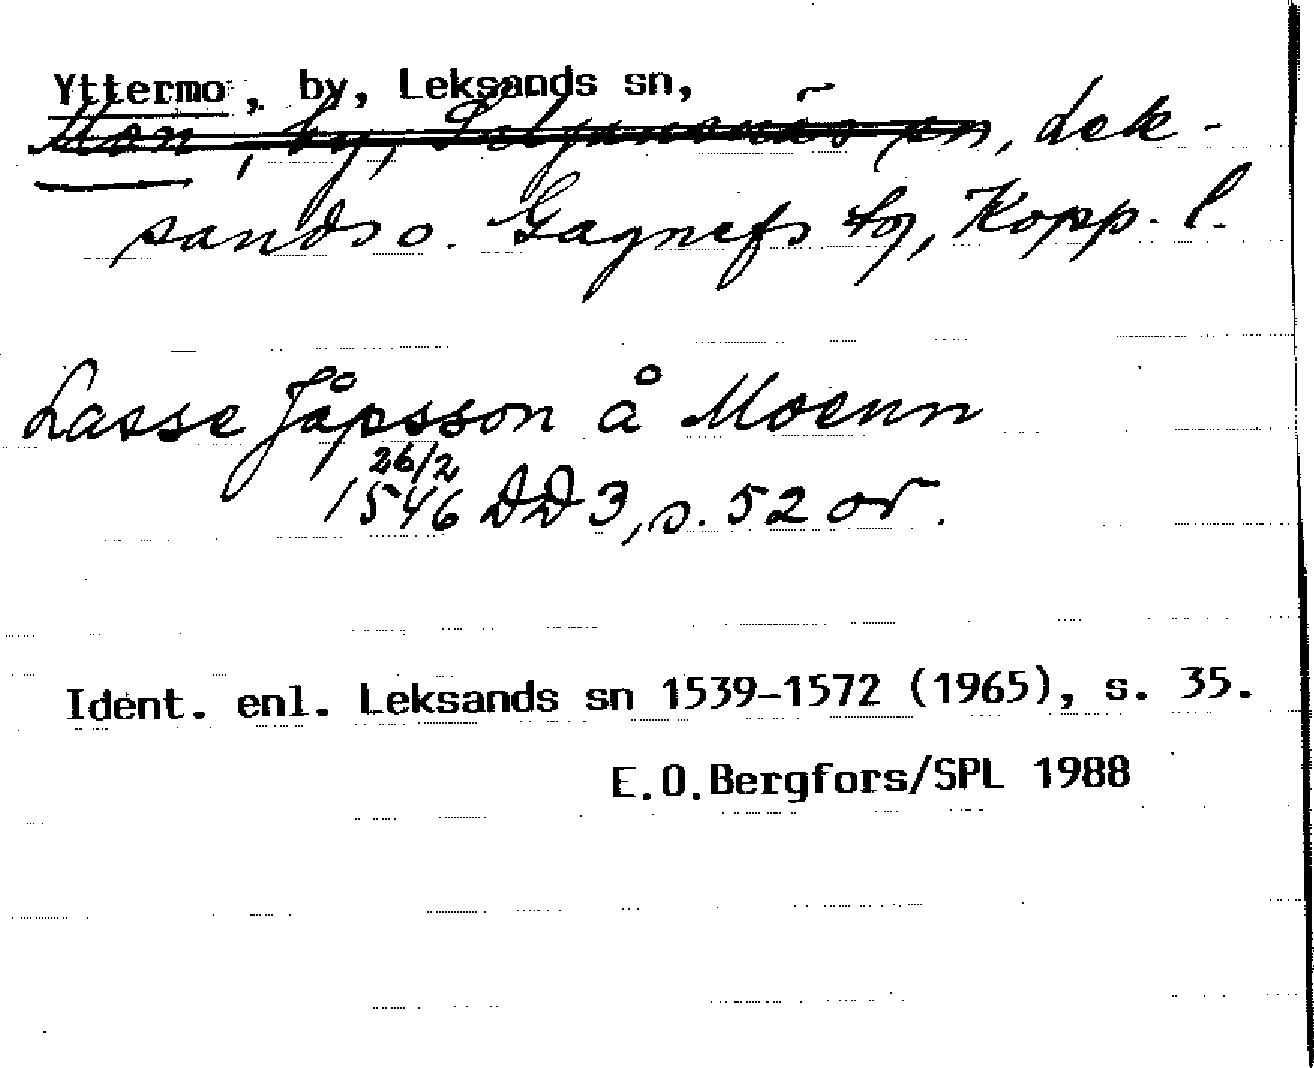 Yttermo, by, Leksands sn,
Mon, by, Siljansnäs sn, Lek-
sands o. Gagnefs tg, Kopp. l.
Lasse Jåpsson å Moenn
26/2
1546 DD 3, s. 52 or.
Ident. enl. Leksands sn 1539-1572 (1965), s. 35.
E.O.Bergfors/SPL 1988